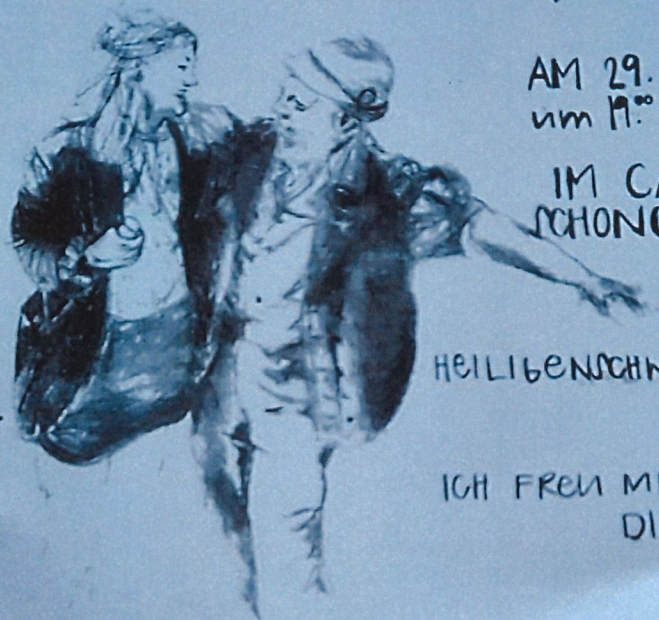 AM 29.
um 19.⁰⁰
IM CA
SCHONG
HEILIGENSCH
ICH FREU MI
DI